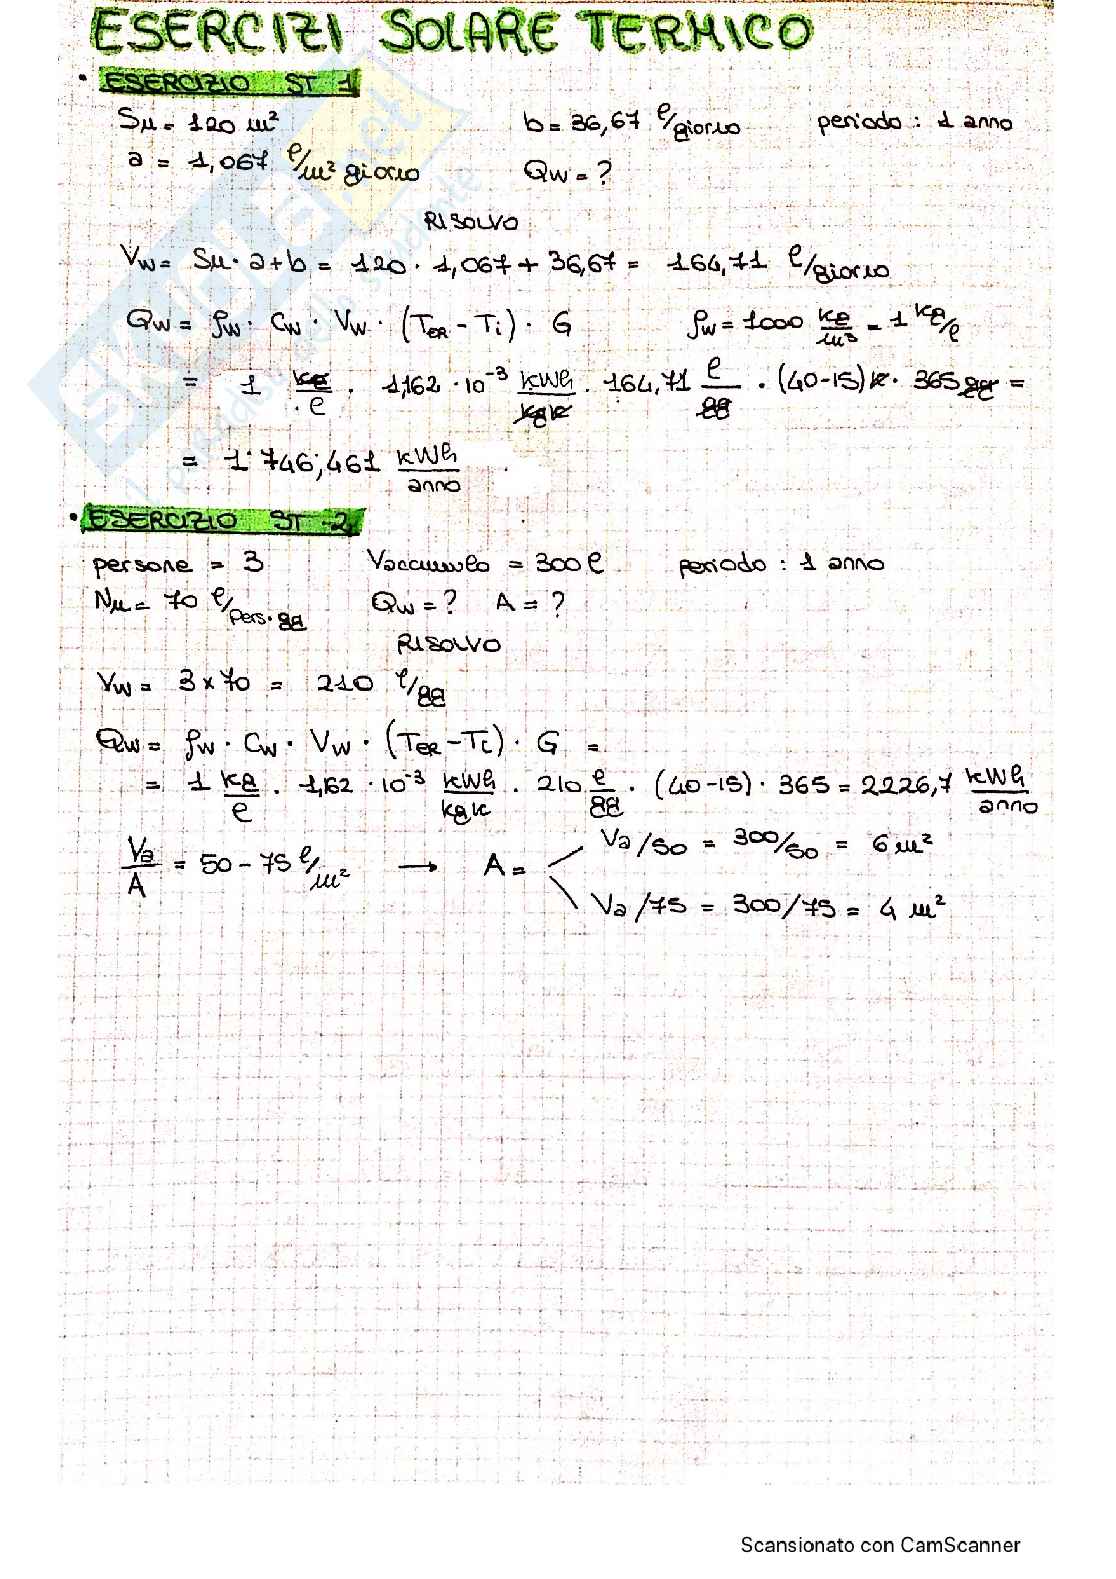 ESERCIZI SOLARE TERMICO
• ESERCIZIO ST 1
Su = 120 m² b = 36,67 l/giorno periodo : 1 anno
a = 1,067 l/m² giorno Qw = ?
RISOLVO
Vw = Su · a + b = 120 · 1,067 + 36,67 = 164,71 l/giorno
Qw = ρw · Cw · Vw · (Ter - Ti) · G ρw = 1000 kg/m³ = 1 kg/l
= 1 kg/l · 1,162 · 10⁻³ kWh/kgK · 164,71 l/gg · (40-15)K · 365 gg =
= 1746,461 kWh/anno
• ESERCIZIO ST 2
persone = 3 Vaccumulo = 300 l periodo : 1 anno
Nu = 70 l/pers·gg Qw = ? A = ?
RISOLVO
Vw = 3 x 70 = 210 l/gg
Qw = ρw · Cw · Vw · (Ter - Ti) · G =
= 1 kg/l · 1,162 · 10⁻³ kWh/kgK · 210 l/gg · (40-15) · 365 = 2226,7 kWh/anno
Va/A = 50 - 75 l/m² → A = Va/50 = 300/50 = 6 m²
Va/75 = 300/75 = 4 m²
Scansionato con CamScanner